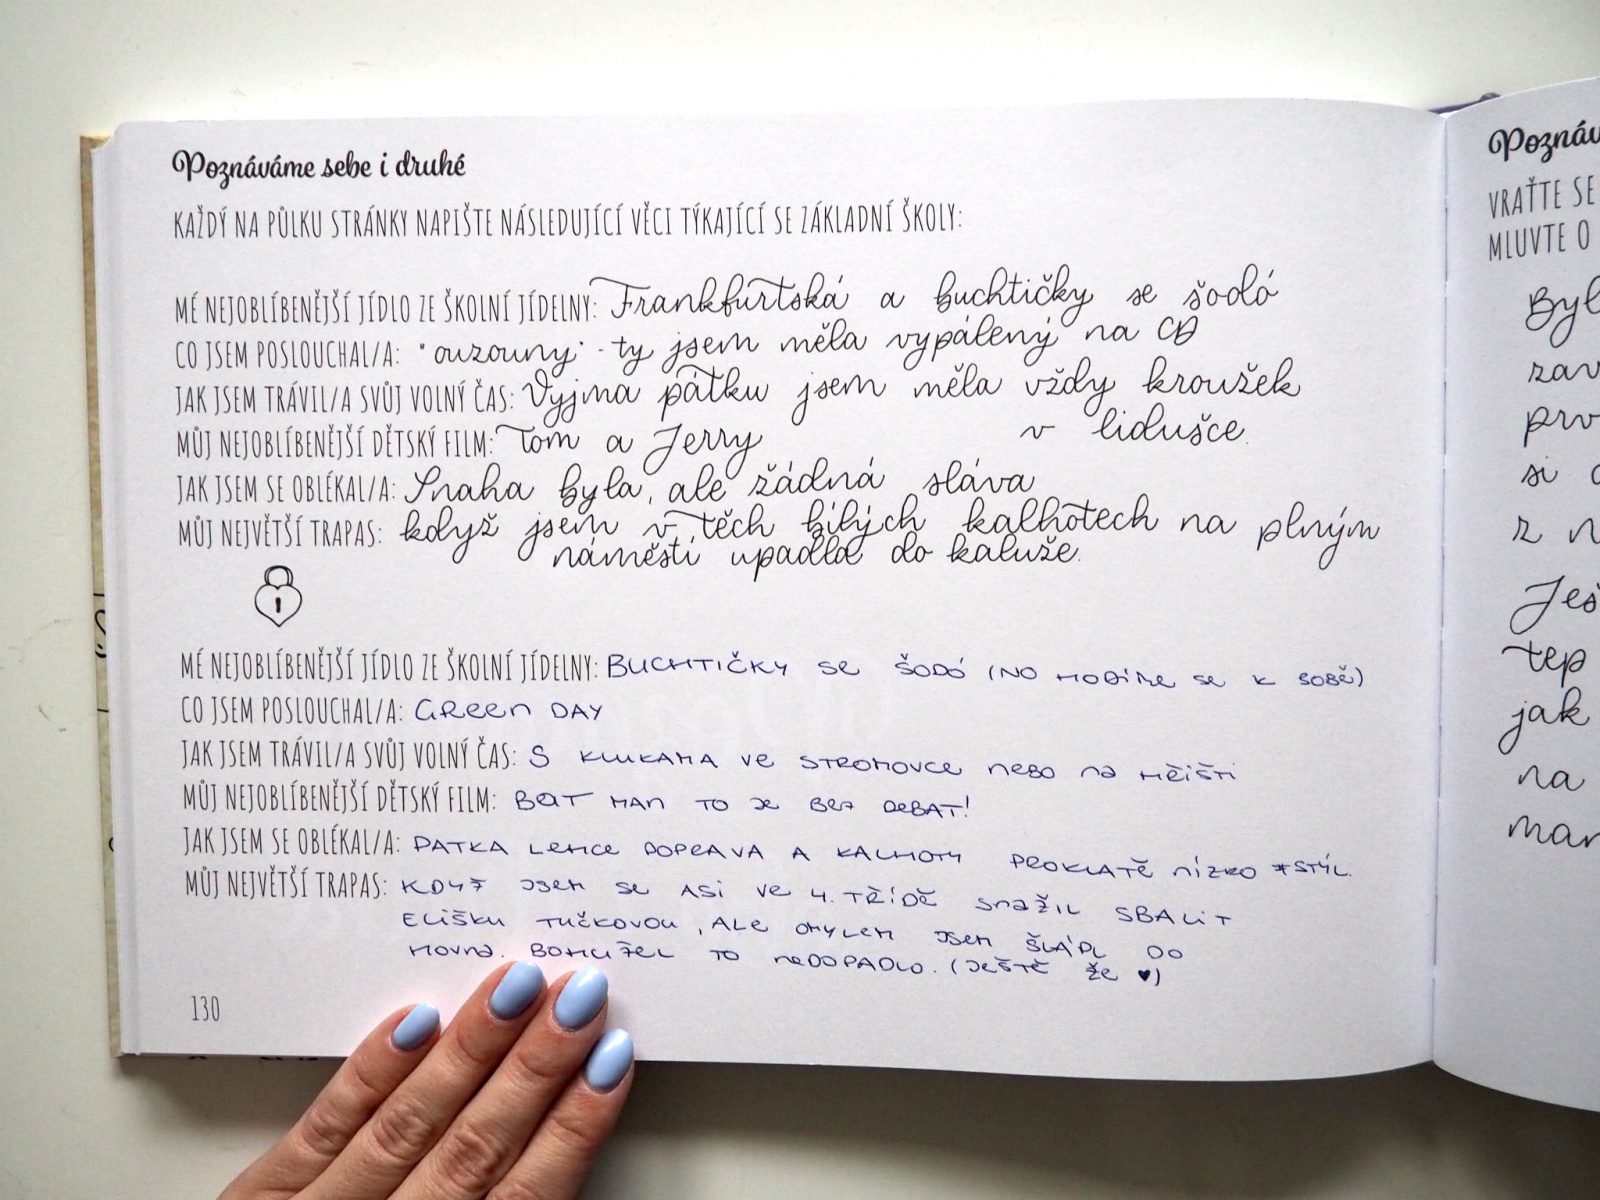 Poznáváme sebe i druhé
KAŽDÝ NA PŮLKU STRÁNKY NAPIŠTE NÁSLEDUJÍCÍ VĚCI TÝKAJÍCÍ SE ZÁKLADNÍ ŠKOLY:
MÉ NEJOBLÍBENĚJŠÍ JÍDLO ZE ŠKOLNÍ JÍDELNY: Frankfurtská a buchtičky se šodó
CO JSEM POSLOUCHAL/A: "ouzouny" - ty jsem měla vypálený na CD
JAK JSEM TRÁVIL/A SVŮJ VOLNÝ ČAS: Vyjma pátku jsem měla vždy kroužek
v lidušce.
MŮJ NEJOBLÍBENĚJŠÍ DĚTSKÝ FILM: Tom a Jerry
JAK JSEM SE OBLÉKAL/A: Snaha byla, ale žádná sláva
MŮJ NEJVĚTŠÍ TRAPAS: když jsem v těch bílých kalhotech na plným
náměstí upadla do kaluže.
MÉ NEJOBLÍBENĚJŠÍ JÍDLO ZE ŠKOLNÍ JÍDELNY: BUCHTIČKY SE ŠODÓ (NO HODÍME SE K SOBĚ)
CO JSEM POSLOUCHAL/A: GREEN DAY
JAK JSEM TRÁVIL/A SVŮJ VOLNÝ ČAS: S KLUKAMA VE STROMOVCE NEBO NA HŘIŠTI
MŮJ NEJOBLÍBENĚJŠÍ DĚTSKÝ FILM: BATMAN TO JE BEZ DEBAT!
JAK JSEM SE OBLÉKAL/A: PATKA LEHCE DOPRAVA A KALHOTY PROKLATĚ NÍZKO #STÝL
MŮJ NEJVĚTŠÍ TRAPAS: KDYŽ JSEM SE ASI VE 4. TŘÍDĚ SNAŽIL SBALIT
ELIŠKU TUČKOVOU, ALE OMYLEM JSEM ŠLÁPL DO
HOVNA. BOHUŽEL TO NEDOPADLO. (JEŠTĚ ŽE ♥)
130
Poznáv
VRAŤTE SE
MLUVTE O
Byl
zav
prv
si
z n
Ješ
tep
jak
na
mar